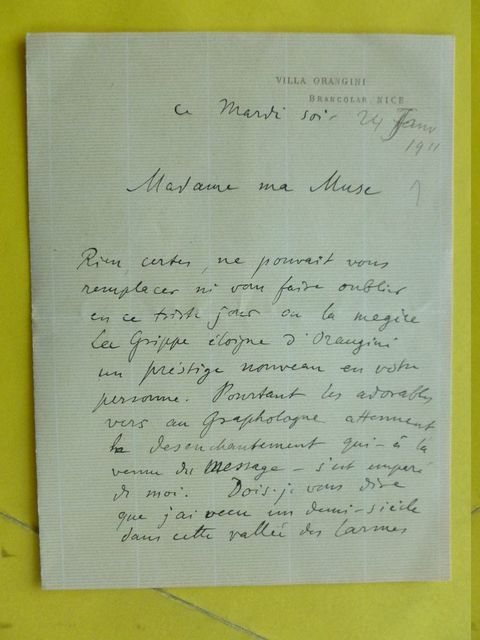 VILLA ORANGINI
BRANCOLAR, NICE
ce Mardi soir 24 Janv
1911
Madame ma Muse
Rien, certes, ne pouvait vous
remplacer ni vous faire oublier
en ce triste jour où la
La Grippe éloigne d'Orangini
un préstige nouveau en votre
personne. Pourtant les adorables
vers au Graphologue attenuent
le desenchantement qui - à la
venue du Message - s'est emparé
de moi. Dois-je vous dire
que j'ai vecu un demi-siècle
dans cette vallée des larmes